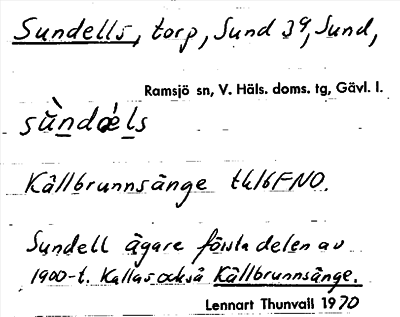 Sundells, torp, Sund 3⁹, Sund,
Ramsjö sn, V. Häls. doms. tg, Gävl. l.
sùndǽls
Källbrunnsänge tk16FNO.
Sundell ägare första delen av
1900-t. Kallas också Källbrunnsänge.
Lennart Thunvall 1970